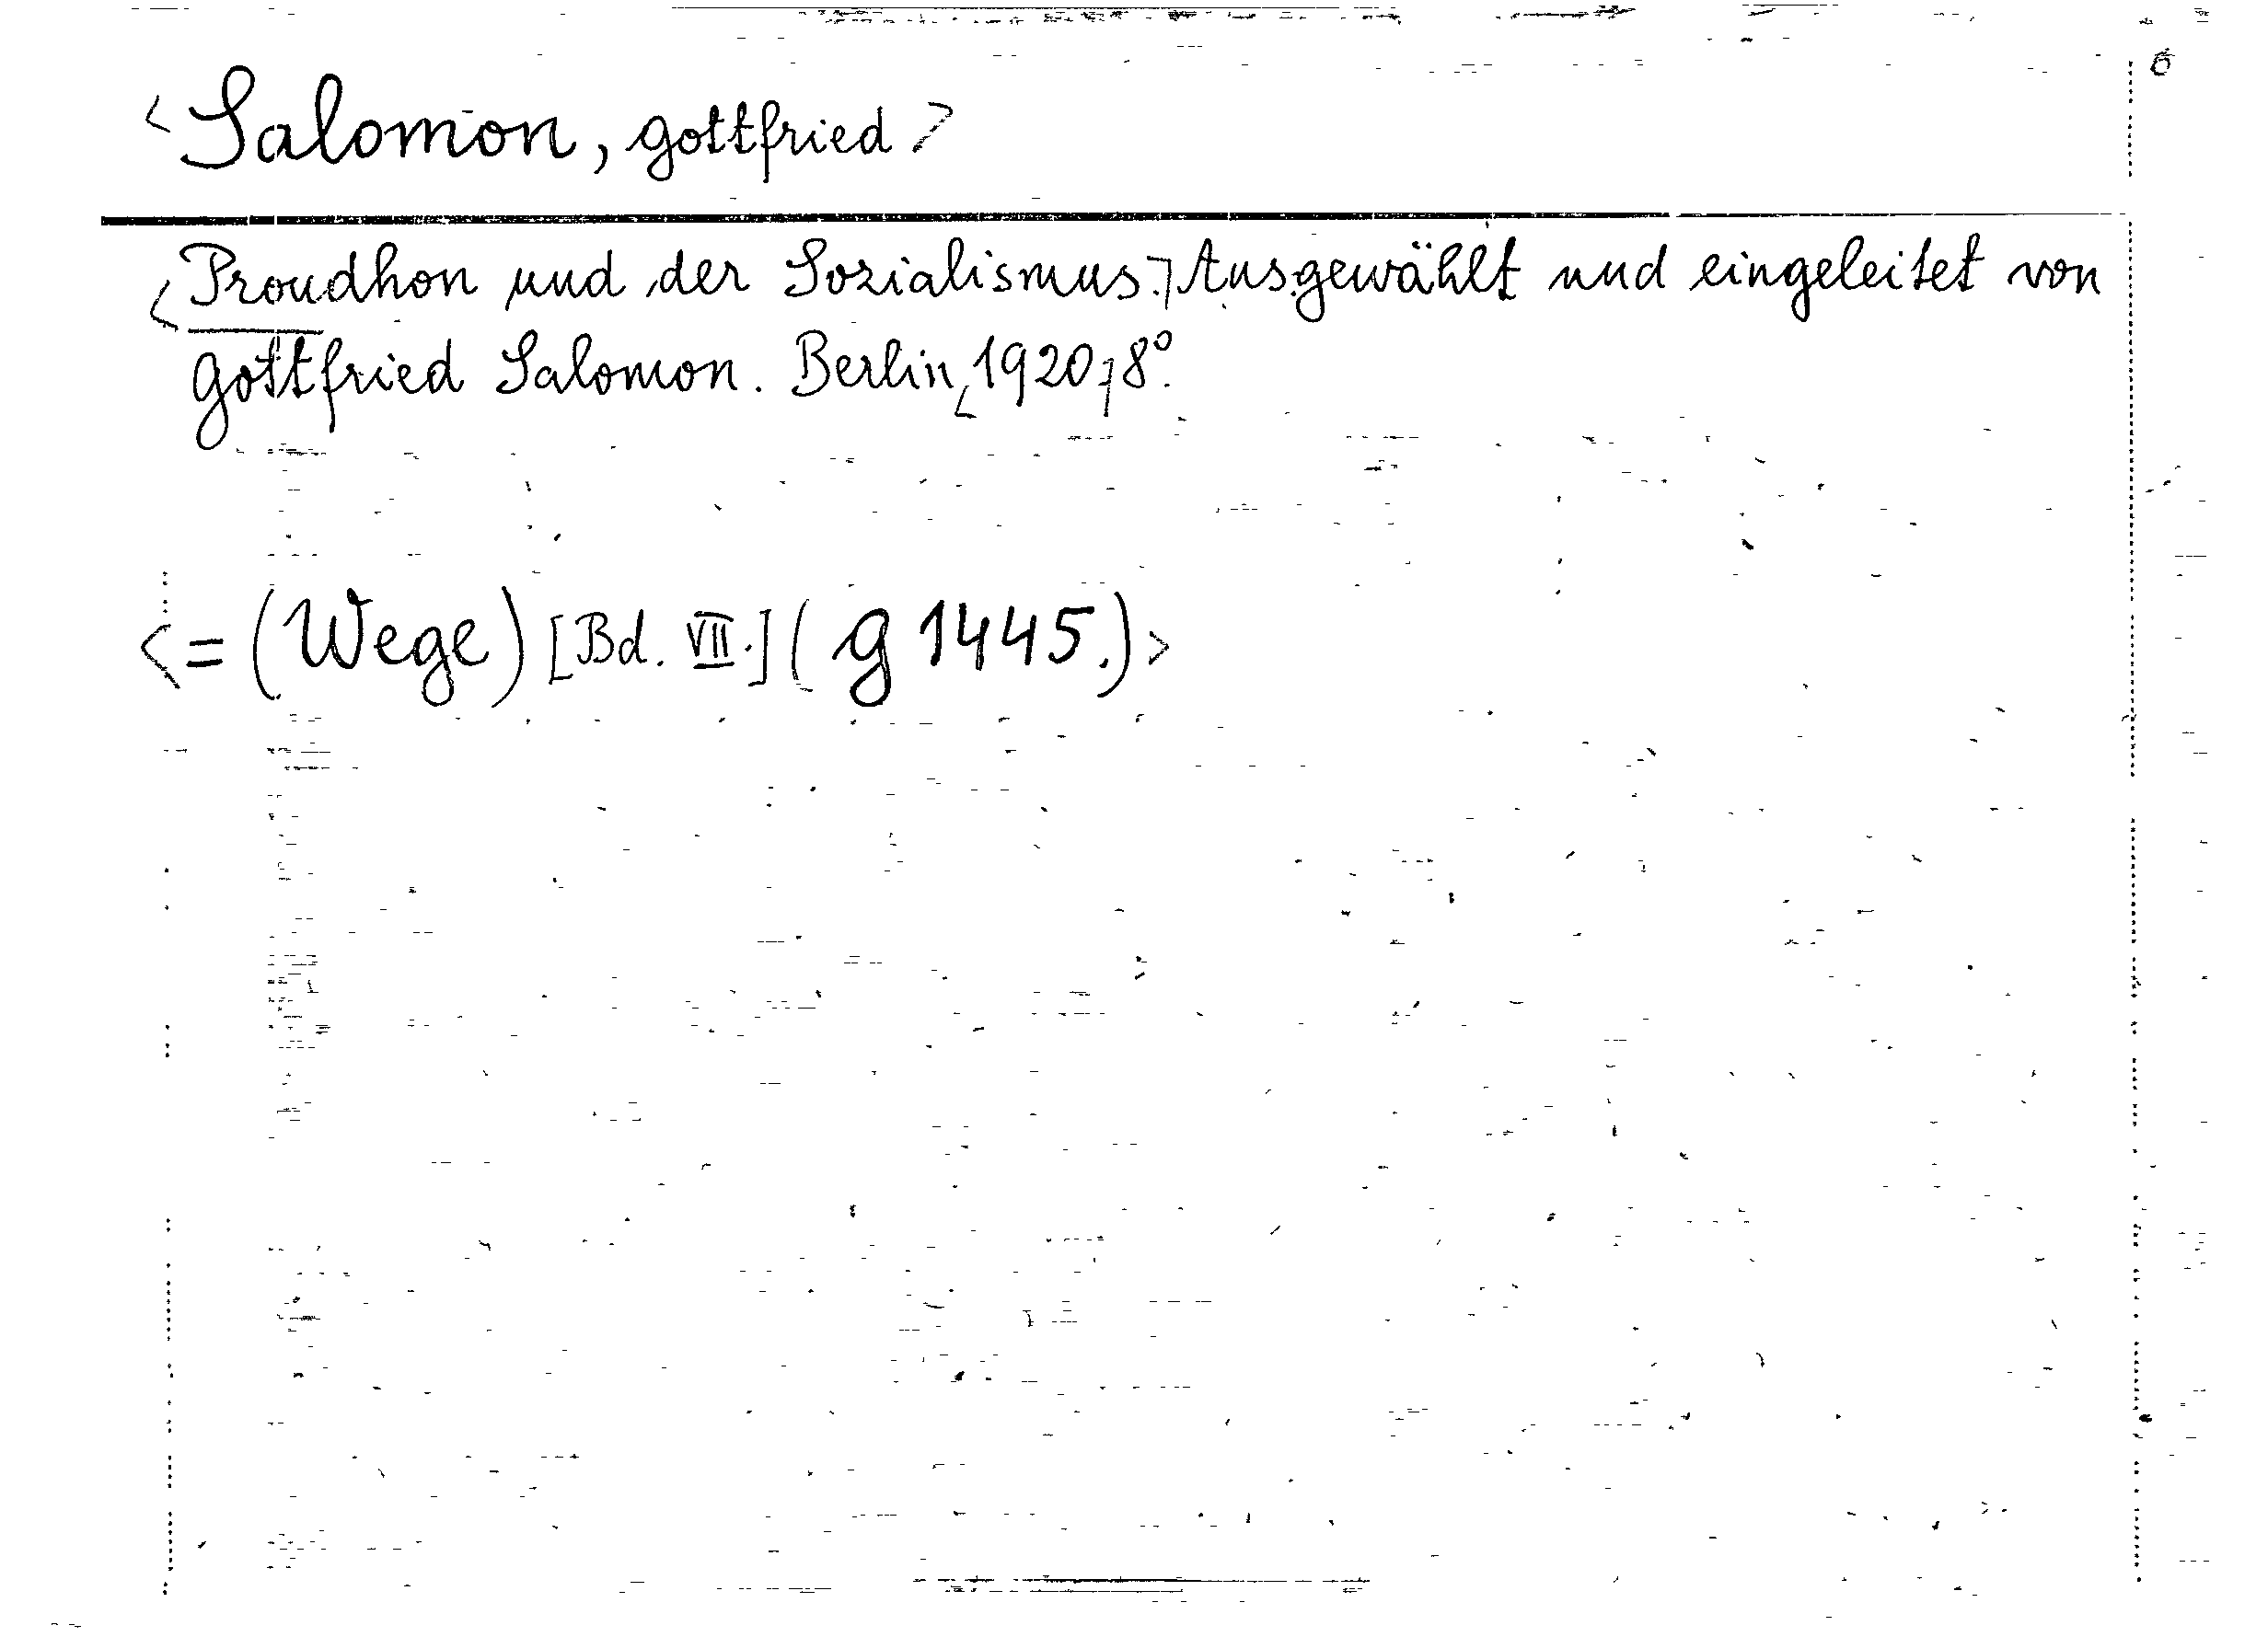 6
<Salomon, Gottfried>
<Proudhon und der Sozialismus.> Ausgewählt und eingeleitet von
Gottfried Salomon. Berlin <1920> 8°.
<= (Wege) [Bd. VII.] (G 1445.)>